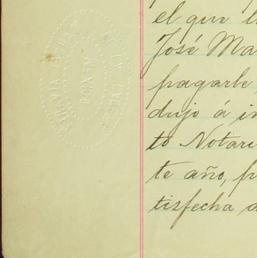 el que l
José Ma
pagarle
dujo á in
to Notari
te año, p
tisfecha